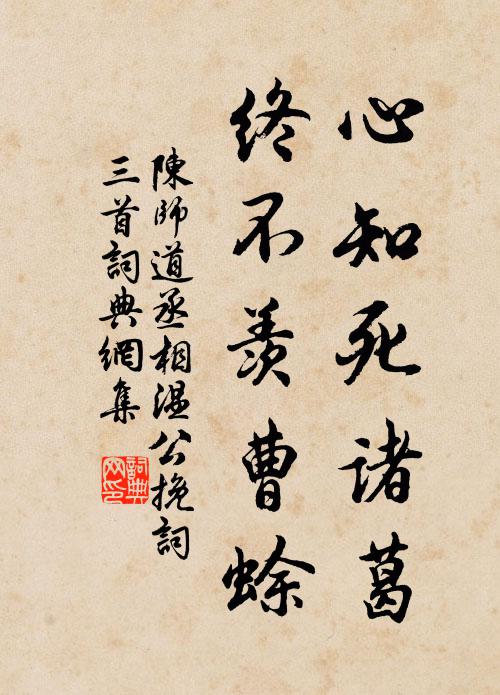 心知死诸葛
终不羨曹蜍
陳師道丞相温公挽詞
三首詞典網集
詞典
网印